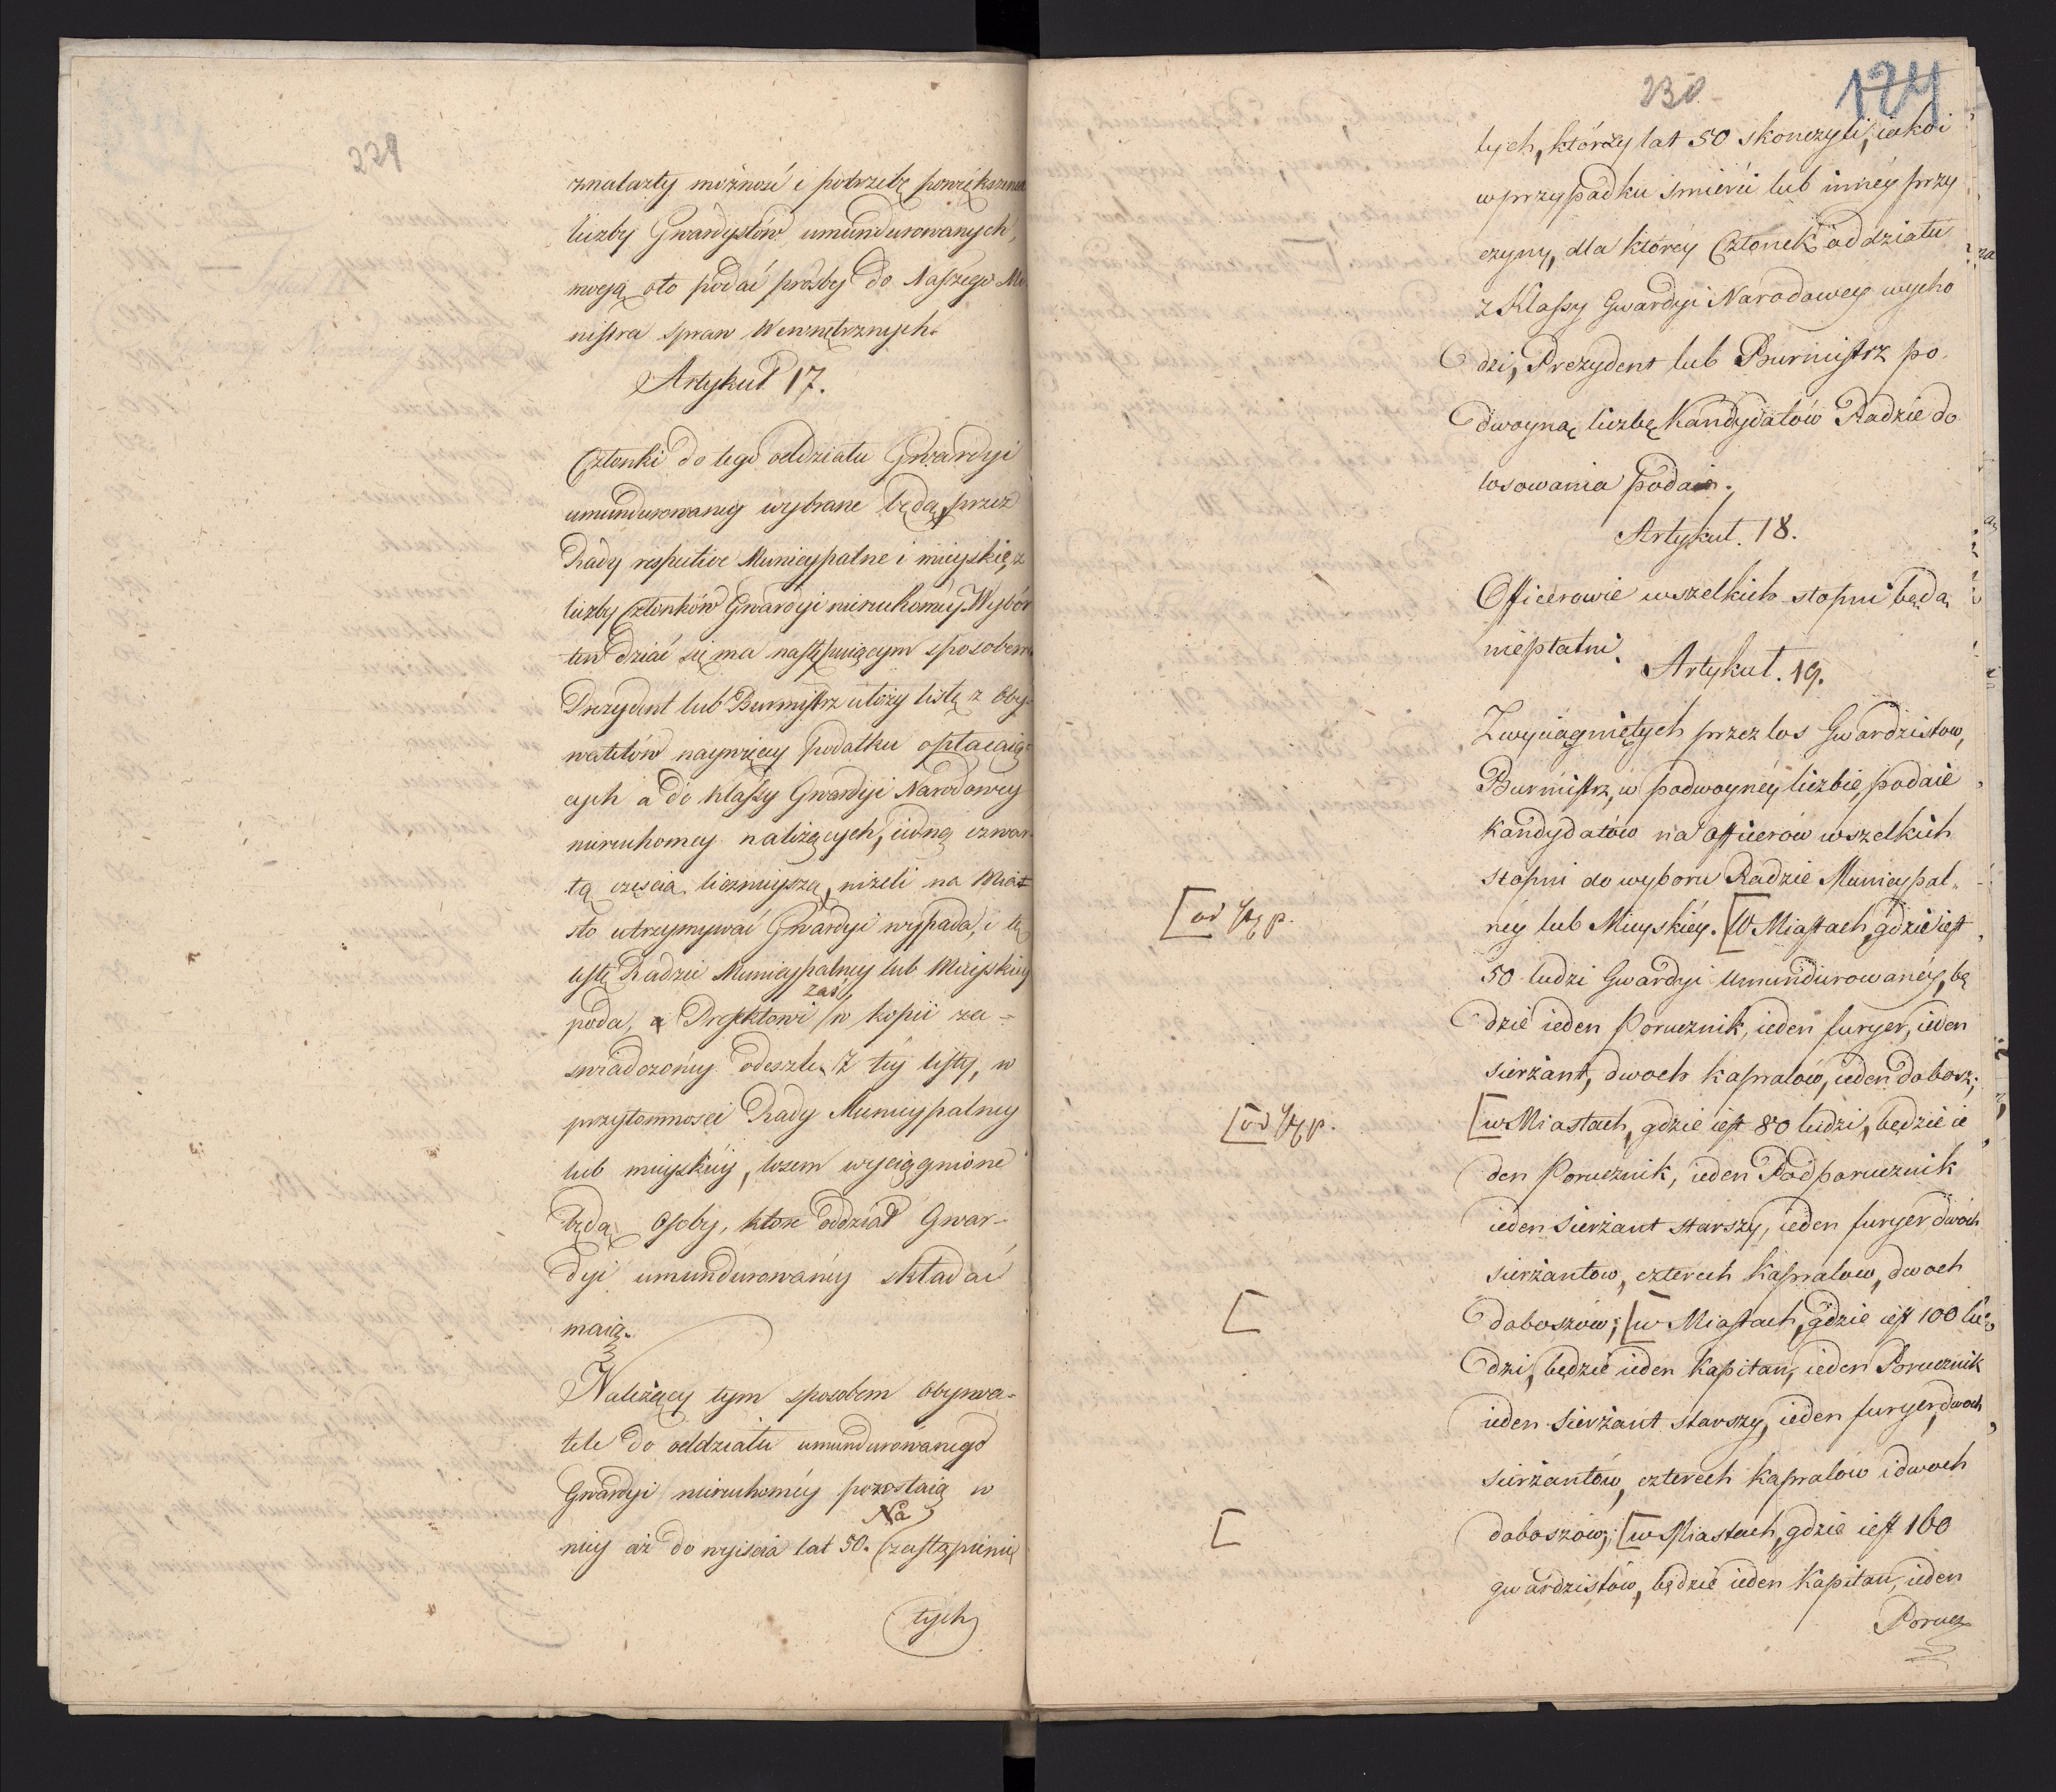 229
znalazły możność i potrzebę powiększenia
liczby Gwardystów umundurowanych,
mogą oto podać prośby do Naszego Mi
nistra spraw Wewnętrznych.
Artykuł 17.
Członki do tego oddziału Gwardyi
umundurowaney wybrane będą, przez
Rady respective Municypalne i mieyskie, z
liczby Członków Gwardyi nieruchoméy. Wybór
ten dziać się ma następuiącym sposobem
Prezydent lub Burmistrz ułoży listę z Oby-
watelów naywięcéy podatku opłacaią-
cych a do klassy Gwardyi Narodowey
nieruchomey należących, iedną czwar
tą częścią licznieyszą, niżeli na Mia
sto utrzymywać Gwardyi wypada, i tę
listę Radzie Municypalney lub Mieyskiey
zaś
poda, a Prefektowi w kopii za-
swiadczoney odeszle. Z téy listy, w
przytomnosci Rady Municypalney
lub mieyskiéy, losem wyciągnione
będą Osoby, ktore oddział Gwar-
dyi umundurowanéy składać
maią.
Należący tym sposobem Obywa-
tele do oddziału umundurowanego
Gwardyi nieruchoméy pozostaią w
Na
niey aż do wyiscia lat 50. zastąpienie
tych
230
124
tych, którzy lat 50 skonczyli, iako i
w przypadku smierći lub innéy przy
czyny, dla któréy Członek oddziału
z Klassy Gwardyi Narodowey wycho
dzi, Prezydent lub Burmistrz po
dwoyną liczbę Kandydatów Radzie do
losowania podaie.
Artykuł. 18.
Officerowie wszelkich stopni będą
niepłatni.
Artykuł. 19.
Z wyciągniętych przez los Gwardzistow,
Burmistrz, w podwoynéy liczbie, podaie
kandydatów na officerów wszelkich
stopni do wyboru Radzie Municypal-
néy lub Mieyskiéy. [W Miastach, gdzie iest
[od ustęp.
50 ludzi Gwardyi Umundurowanéy, bę
dzie ieden Porucznik, ieden furyer, ieden
sierżant, dwoch kapralów, ieden dobosz;
[od ustęp.
[w Miastach, gdzie iest 80 ludzi, będzie ie
den Porucznik, ieden Podporucznik
ieden sierżant starszy, ieden furyer, dwóch
sierżantow, czterech kapralow, dwoch
[
doboszów; [w Miastach, gdzie iest 100 lu
dzi, będzie ieden Kapitan, ieden Porucznik
ieden sierżant starszy, ieden furyer, dwoch
sierżantów, czterech kapralów i dwoch
[
doboszów; [w Miastach, gdzie iest 160
gwardzistów, będzie ieden Kapitan, ieden
Porucz